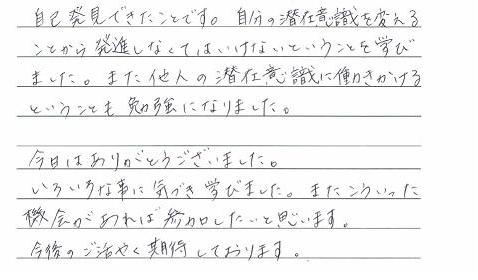 自己発見できたことです。自分の潜在意識を変える
ことから発進しなくてはいけないということを学び
ました。また他人の潜在意識に働きかける
ということも勉強になりました。
今日はありがとうございました。
いろいろな事に気づき学びました。またこういった
機会があれば参加したいと思います。
今後のご活やく期待しております。